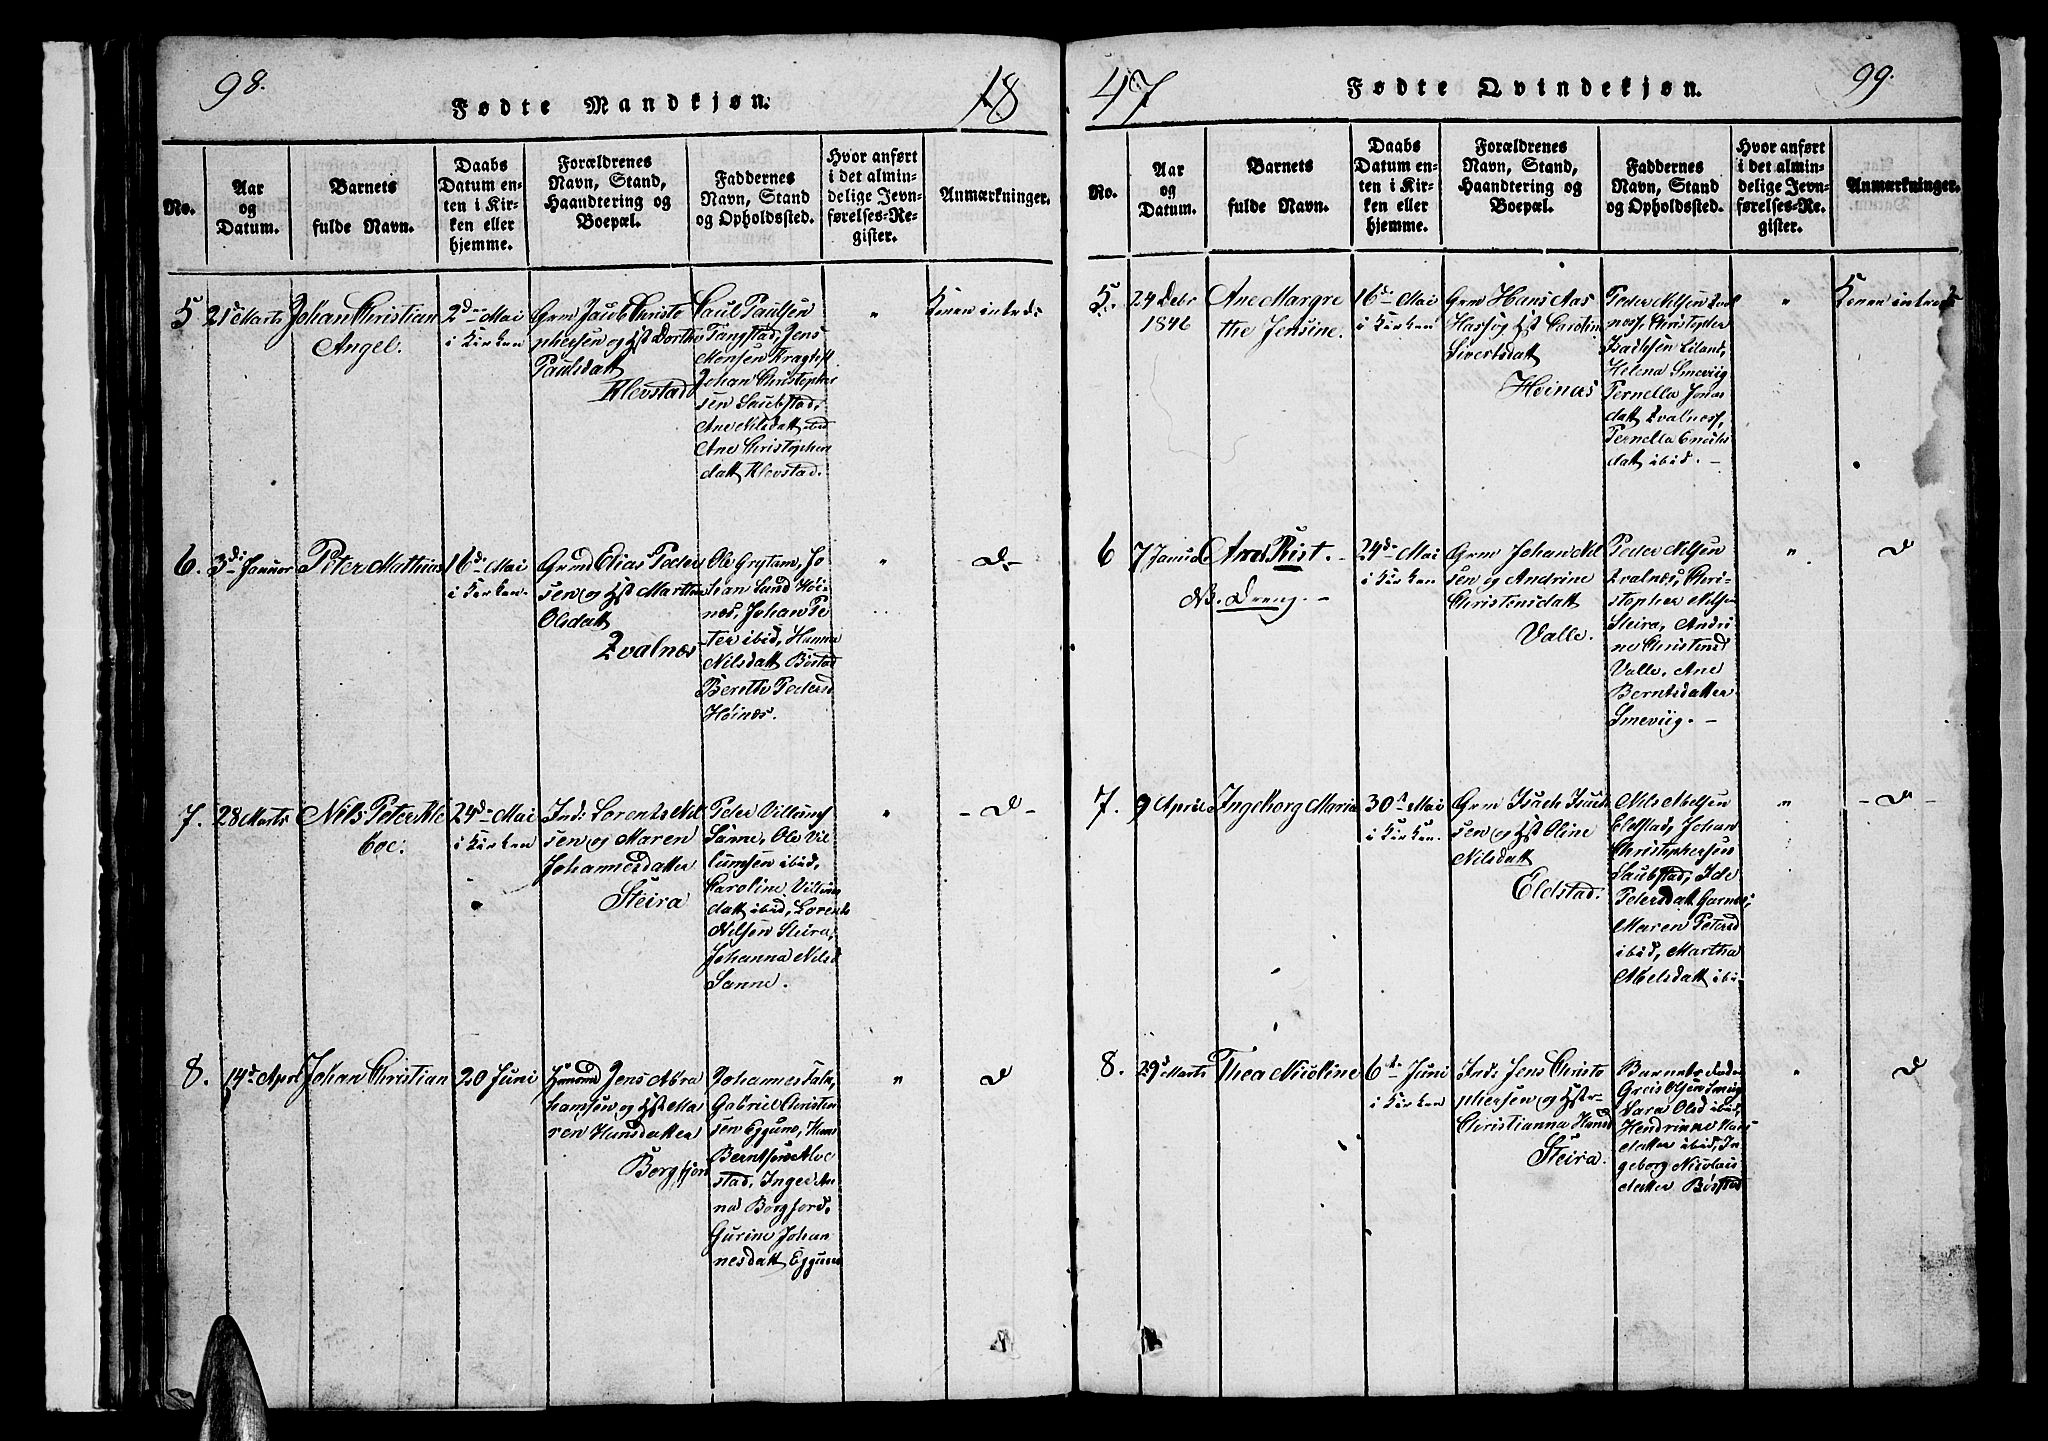 98.
Fødte Mandkjøn.
18
No.
Aar
og
Datum.
Barnets
fulde Navn.
Daabs
Datum en-
ten i Kir-
ken eller
hjemme.
Forældrenes
Navn, Stand,
Haandtering og
Boepæl.
Faddernes
Navn, Stand
og Opholdssted.
Hvor anført
i det almin-
delige Jevn-
førelses-Re-
gister.
Anmærkninger.
5
21 Marts
Johan Christian
Angel.
2d Mai
i Kirken
Grm Jacob Christo
phersen og Hst Dorthe
Paulsdatt
Klevstad
Paul Paulsen
Tangstad, Jens
Monsen
Johan Christopher
sen Saubstad,
Ane Nilsdatt ibid
Ane Christopher
datt Klevstad.
"
6.
3di Januar
Peter Mathias
16d Mai
i Kirken.
Grmd Elias Peder
sen og Hst Martha
Olsdatt
Zvalnæs
Ole Grytam, Jo
han Lund Høi-
næs, Johan Pe
ter ibid, Hanna
Nilsdatt Bøstad
Berethe Pedersd
Høinæs.
"
D-
7.
28 Marts
Nils Peter Ale
Coe.
24d Mai
i Kirken
Ind: Lorents Nil
sen og Maren
Johannesdatter
Steira
Peder Villums
Sanne, Ole Vil
lumsen ibid,
Caroline Villum
datt ibid, Lorents
Nilsen Steira,
Johanna Nilsd
Sanne.
"
- D -
8.
14d April
Johan Christian
20 Juni
Huusmd Jens Abra
hamsen og Hst Ma
ren Hansdatter
Borgfjord
Johannes Falk,
Gabriel Christen
sen Eggum, Hans
Berntsen Alve
stad, Inger An
na Borgfjord,
Gurine Johan
nesdatt Eggum
"
D
47
Fødte Qvindekjøn.
99.
No.
Aar
og
Datum.
Barnets
fulde Navn.
Daabs
Datum en-
ten i Kir-
ken eller
hjemme.
Forældrenes
Navn, Stand,
Haandtering og
Boepæl.
Faddernes
Navn, Stand
og Opholdssted.
Hvor anført
i det almin-
delige Jevn-
førelses-Re-
gister.
Anmærkninger.
5.
24 Debr
1846
Ane Margre
the Jensine.
16d Mai
i Kirken
Grm Hans Aas
Hass og Hst Carolin
Sivertsdatt
Høinæs
Peder Nilsen Zval
næs, Christopher
Isachsen Liland,
Helena Smeviig
Pernella Jonas
datt Zvalnæs,
Pernella Enochs
datt ibid. -
"
6
7 Janur
Arnt Rist. -
NB. Dreng. -
24d Mai
i Kirken
Grm Johan Nil
sen og Andrine
Christensdatt
Valle.
Peder Nilsen
Zvalnæs, Chri-
stopher Nilsen
Steira, Andri
ne Christensd
Valle, Ane
Berntsdatter
Smeviig. -
"
D
7.
9 April
Ingeborg Maria
30d Mai
i Kirken.
Grm Isach Isach
sen og Hst Oline
Nilsdatt
Eldstad.
Nils Abelsen
Eldstad, Johan
Christophersen
Saubstad, Ide
Pedersdatt
Maren Petersd
ibid, Martha
Abelsdatt ibi.
"
- D -
8.
29d Marts
Thea Nicoline
6te Juni
i Kirken
Ind: Jens Christo
phersen og Hstr-
Christianna Hansd
Steira.
Barnets Fader
Greis Olsen Smeviig
Sara Olsd ibid,
Hendrikke Hans
datter ibid, In
geborg Nicolai
datter Bøstad
"
D